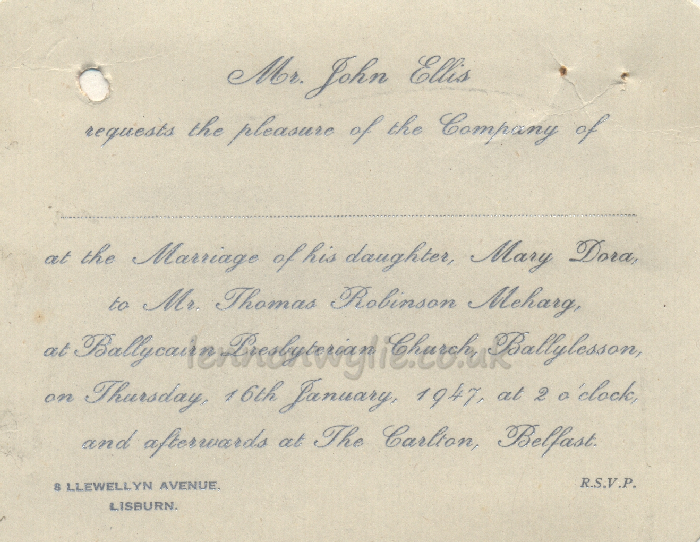 Mr. John Ellis
requests the pleasure of the Company of
at the Marriage of his daughter, Mary Dora,
to Mr. Thomas Robinson Meharg,
at Ballycairn Presbyterian Church, Ballylesson,
lennonwylie.co.uk
on Thursday, 16th January, 1947, at 2 o'clock,
and afterwards at The Carlton, Belfast.
8 LLEWELLYN AVENUE.
LISBURN.
R.S.V.P.